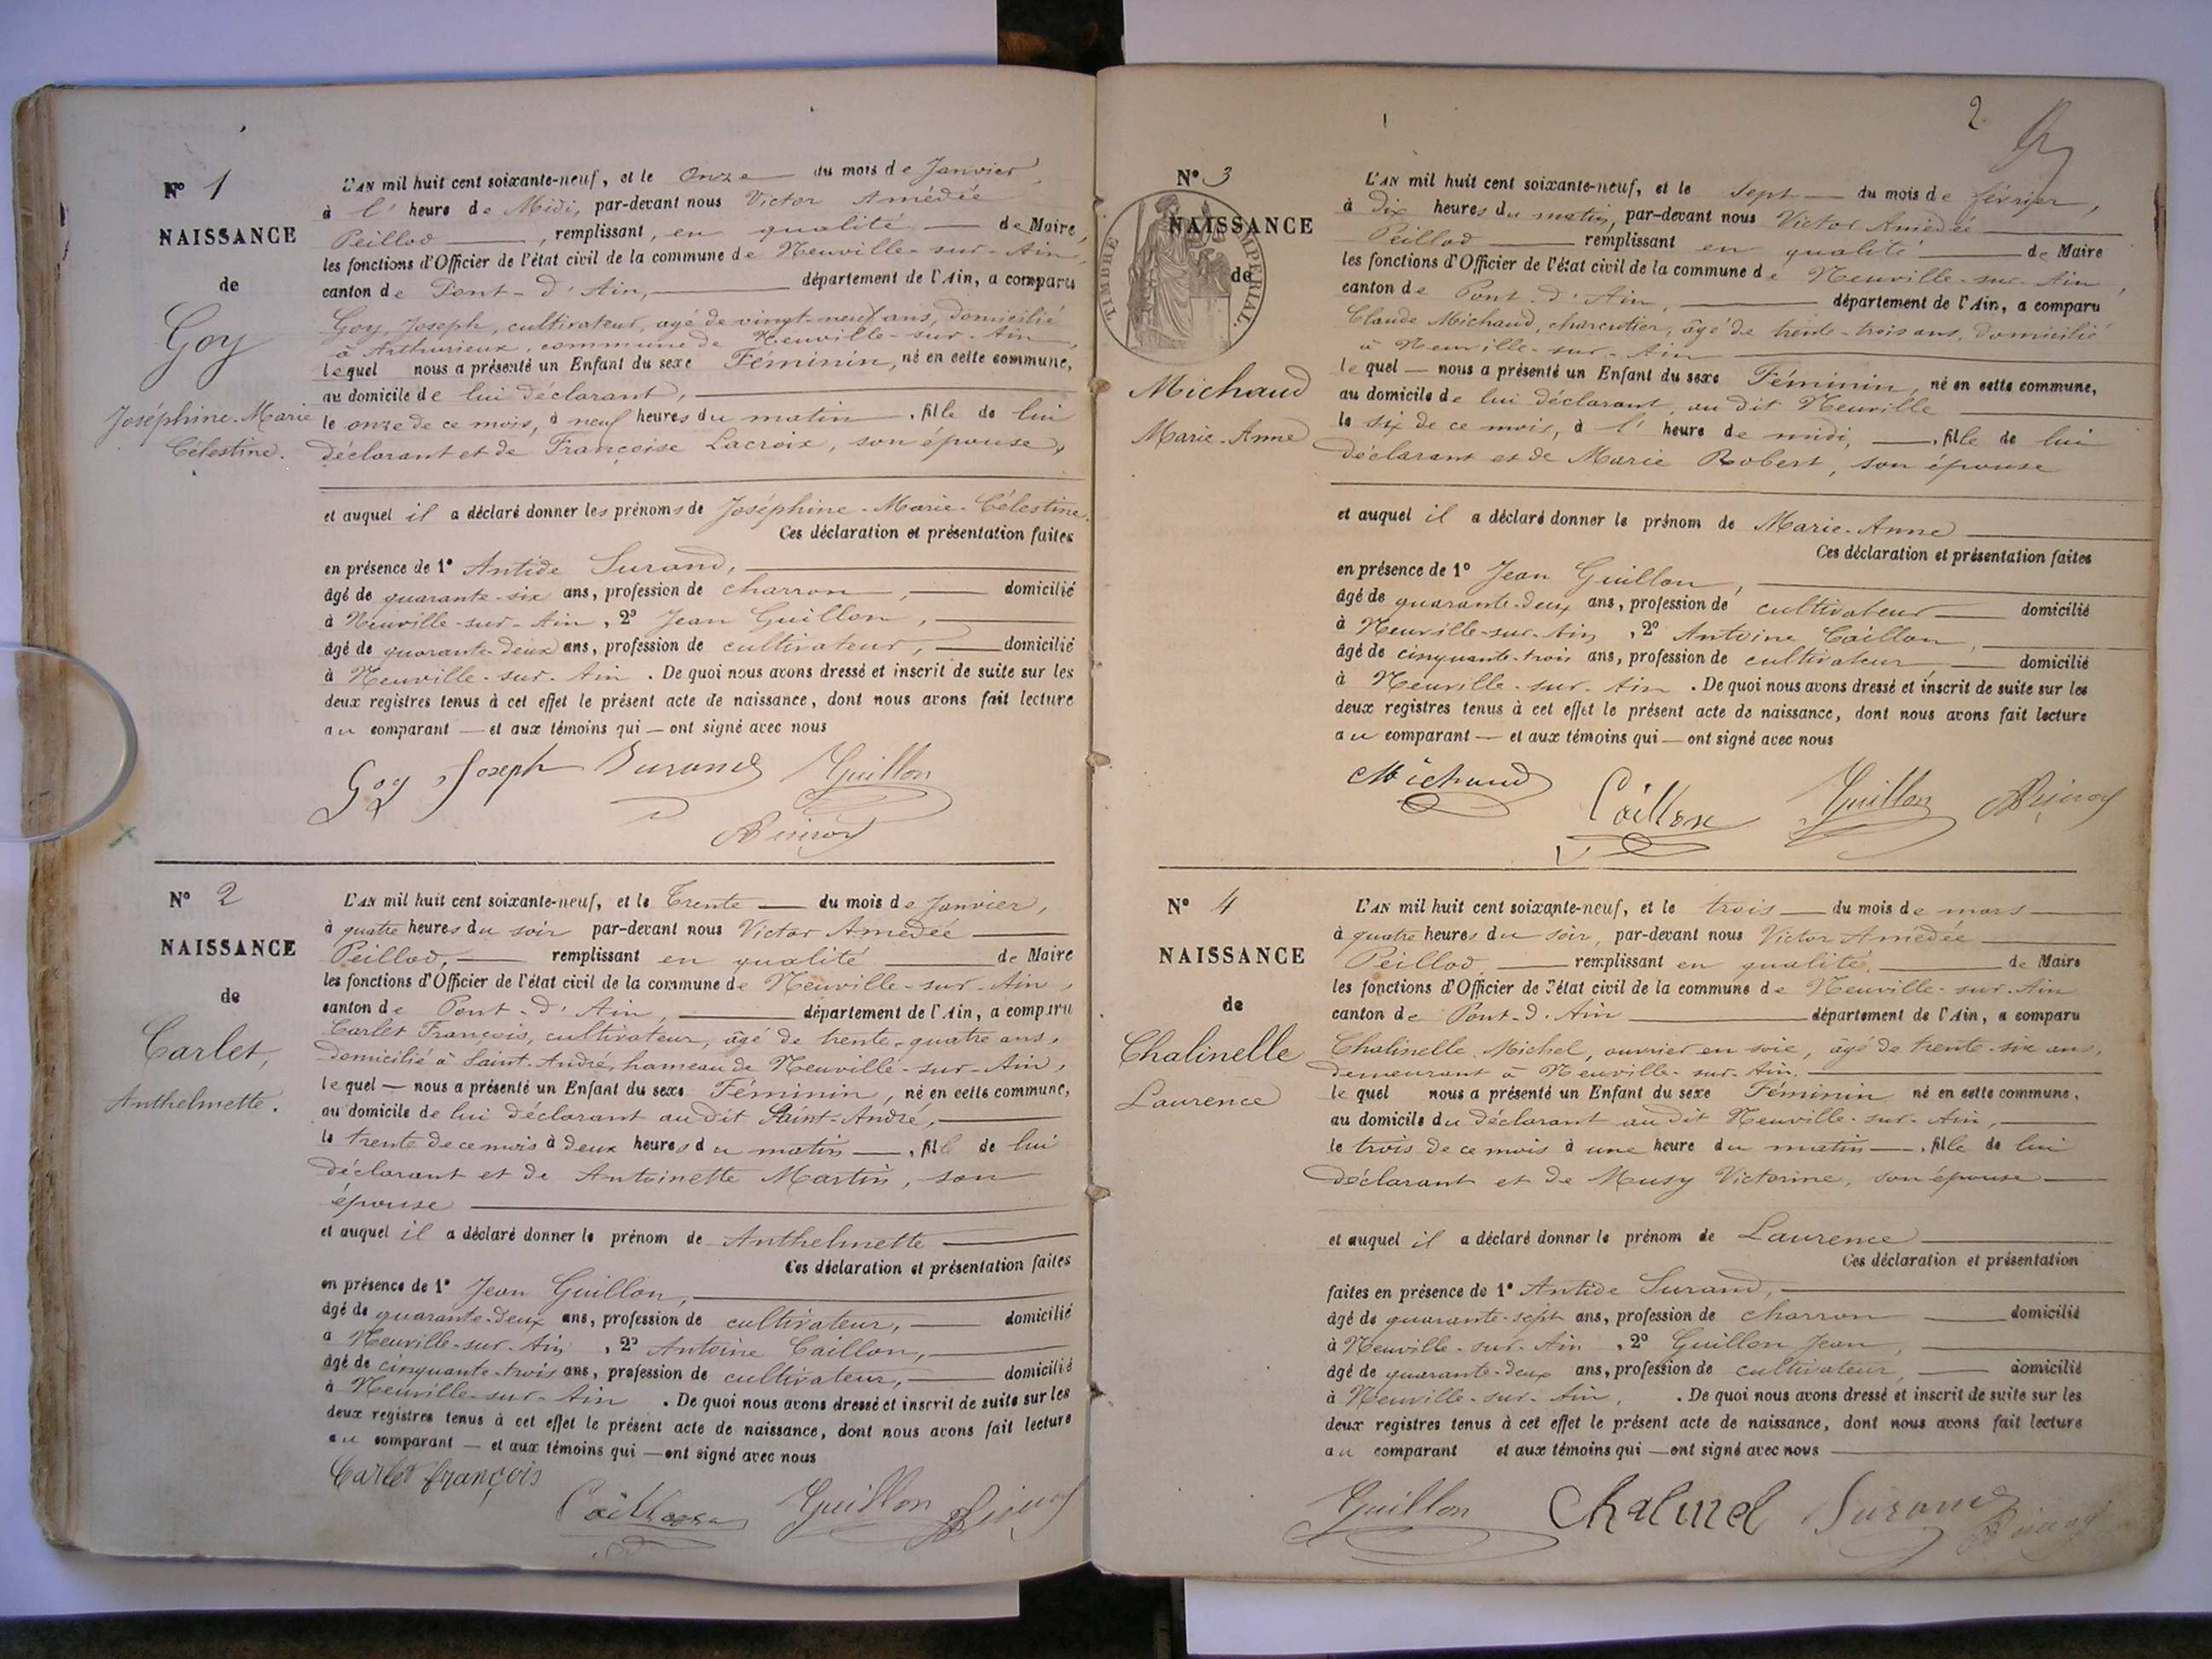 N° 1
NAISSANCE
de
Goy
Joséphine-Marie
Célestine.
L'AN mil huit cent soixante-neuf, et le Onze du mois de Janvier,
à l'heure de Midi, par-devant nous Victor Amédée
Peillod, remplissant, en qualité de Maire,
les fonctions d'Officier de l'état civil de la commune de Neuville-sur-Ain,
canton de Pont-d'Ain, département de l'Ain, a comparu
Goy, Joseph, cultivateur, agé de vingt-neuf ans, domicilié
à Arthurieux, commune de Neuville-sur-Ain,
lequel nous a présenté un Enfant du sexe Féminin, né en cette commune,
au domicile de lui déclarant,
le onze de ce mois, à neuf heures du matin, fille de lui
déclarant et de Françoise Lacroix, son épouse,
et auquel il a déclaré donner les prénoms de Joséphine-Marie-Célestine.
Ces déclaration et présentation faites
en présence de 1° Antide Surand,
âgé de quarante-six ans, profession de charron, domicilié
à Neuville-sur-Ain, 2° Jean Guillon,
âgé de quarante-deux ans, profession de cultivateur, domicilié
à Neuville-sur-Ain. De quoi nous avons dressé et inscrit de suite sur les
deux registres tenus à cet effet le présent acte de naissance, dont nous avons fait lecture
au comparant — et aux témoins qui — ont signé avec nous
Goy Joseph Surand Guillon
N° 2
NAISSANCE
de
Carlet,
Anthelmette.
L'AN mil huit cent soixante-neuf, et le Trente du mois de Janvier,
à quatre heures du soir par-devant nous Victor Amédée
Peillod, remplissant en qualité de Maire
les fonctions d'Officier de l'état civil de la commune de Neuville-sur-Ain,
canton de Pont-d'Ain, département de l'Ain, a comparu
Carlet François, cultivateur, âgé de trente-quatre ans,
domicilié à Saint-André, hameau de Neuville-sur-Ain,
lequel — nous a présenté un Enfant du sexe Féminin, né en cette commune,
au domicile de lui déclarant au dit Saint-André,
le trente de ce mois à deux heures du matin, fille de lui
déclarant et de Antoinette Martin, son
épouse
et auquel il a déclaré donner le prénom de Anthelmette
Ces déclaration et présentation faites
en présence de 1° Jean Guillon,
âgé de quarante-deux ans, profession de cultivateur, domicilié
à Neuville-sur-Ain, 2° Antoine Caillon,
âgé de cinquante-trois ans, profession de cultivateur, domicilié
à Neuville-sur-Ain. De quoi nous avons dressé et inscrit de suite sur les
deux registres tenus à cet effet le présent acte de naissance, dont nous avons fait lecture
au comparant — et aux témoins qui — ont signé avec nous
Carlet françois
Caillon Guillon
2
N° 3
NAISSANCE
de
TIMBRE IMPERIAL.
Michaud
Marie-Anne
L'AN mil huit cent soixante-neuf, et le Sept du mois de février,
à Dix heures du matin, par-devant nous Victor Amédée
Peillod remplissant en qualité de Maire
les fonctions d'Officier de l'état civil de la commune de Neuville-sur-Ain,
canton de Pont-d'Ain, département de l'Ain, a comparu
Claude Michaud, charcutier, âgé de trente-trois ans, domicilié
à Neuville-sur-Ain
lequel — nous a présenté un Enfant du sexe Féminin, né en cette commune,
au domicile de lui déclarant, au dit Neuville
le six de ce mois, à l'heure de midi, fille de lui
déclarant et de Marie Robert, son épouse
et auquel il a déclaré donner le prénom de Marie-Anne
Ces déclaration et présentation faites
en présence de 1° Jean Guillon,
âgé de quarante-deux ans, profession de cultivateur domicilié
à Neuville-sur-Ain, 2° Antoine Caillon,
âgé de cinquante-trois ans, profession de cultivateur domicilié
à Neuville-sur-Ain. De quoi nous avons dressé et inscrit de suite sur les
deux registres tenus à cet effet le présent acte de naissance, dont nous avons fait lecture
au comparant — et aux témoins qui — ont signé avec nous
Michaud Caillon Guillon
N° 4
NAISSANCE
de
Chalinelle
Laurence
L'AN mil huit cent soixante-neuf, et le trois du mois de mars
à quatre heures du soir, par-devant nous Victor Amédée
Peillod remplissant en qualité de Maire
les fonctions d'Officier de l'état civil de la commune de Neuville-sur-Ain
canton de Pont-d'Ain département de l'Ain, a comparu
Chalinelle Michel, ouvrier en soie, âgé de trente-six ans,
demeurant à Neuville-sur-Ain.
lequel nous a présenté un Enfant du sexe Féminin né en cette commune,
au domicile du déclarant au dit Neuville-sur-Ain,
le trois de ce mois à une heure du matin, fille de lui
déclarant et de Musy Victorine, son épouse
et auquel il a déclaré donner le prénom de Laurence
Ces déclaration et présentation
faites en présence de 1° Antide Surand,
âgé de quarante-sept ans, profession de charron domicilié
à Neuville-sur-Ain, 2° Guillon Jean,
âgé de quarante-deux ans, profession de cultivateur, domicilié
à Neuville-sur-Ain, . De quoi nous avons dressé et inscrit de suite sur les
deux registres tenus à cet effet le présent acte de naissance, dont nous avons fait lecture
au comparant et aux témoins qui — ont signé avec nous
Guillon Chalinel Surand